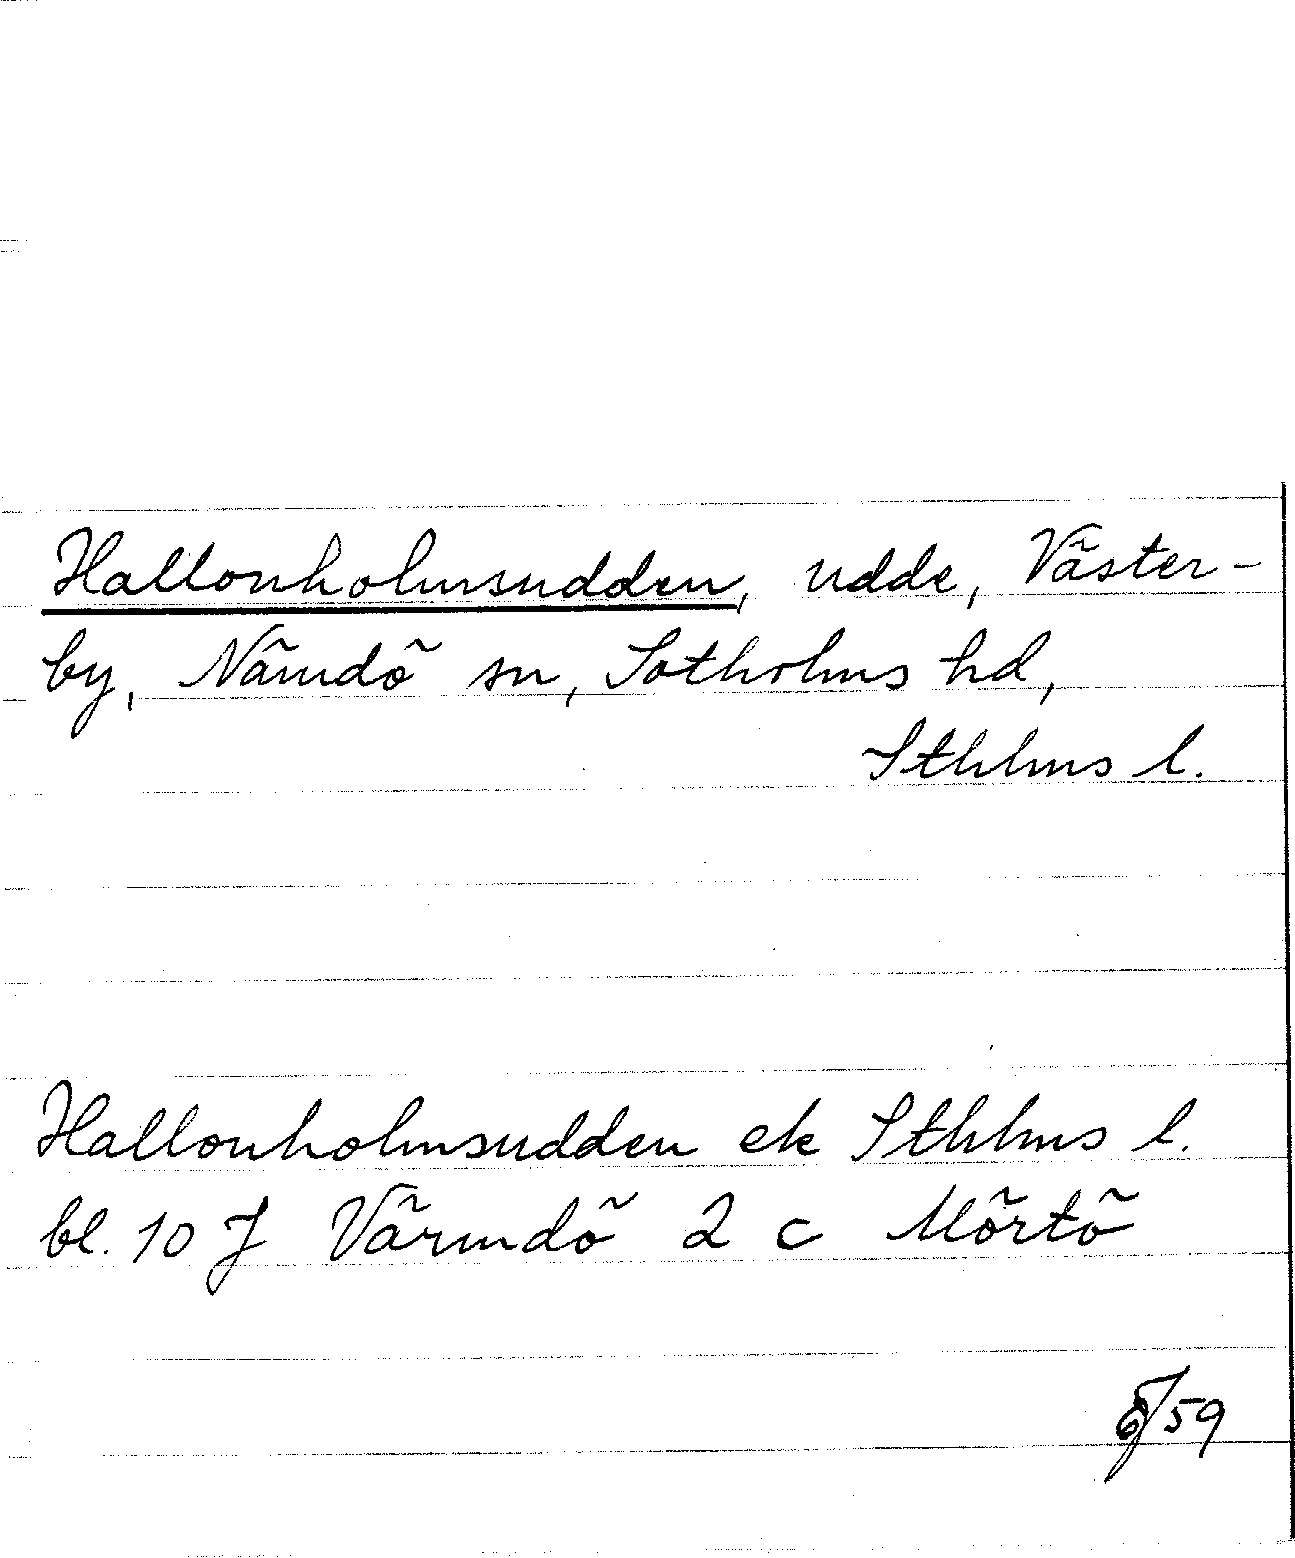 Hallonholmsudden, udde, Väster-
by, Nämdö sn, Sotholms hd,
Sthlms l.
Hallonholmsudden ek Sthlms l.
bl. 10 J Värmdö 2 c Mörtö
59